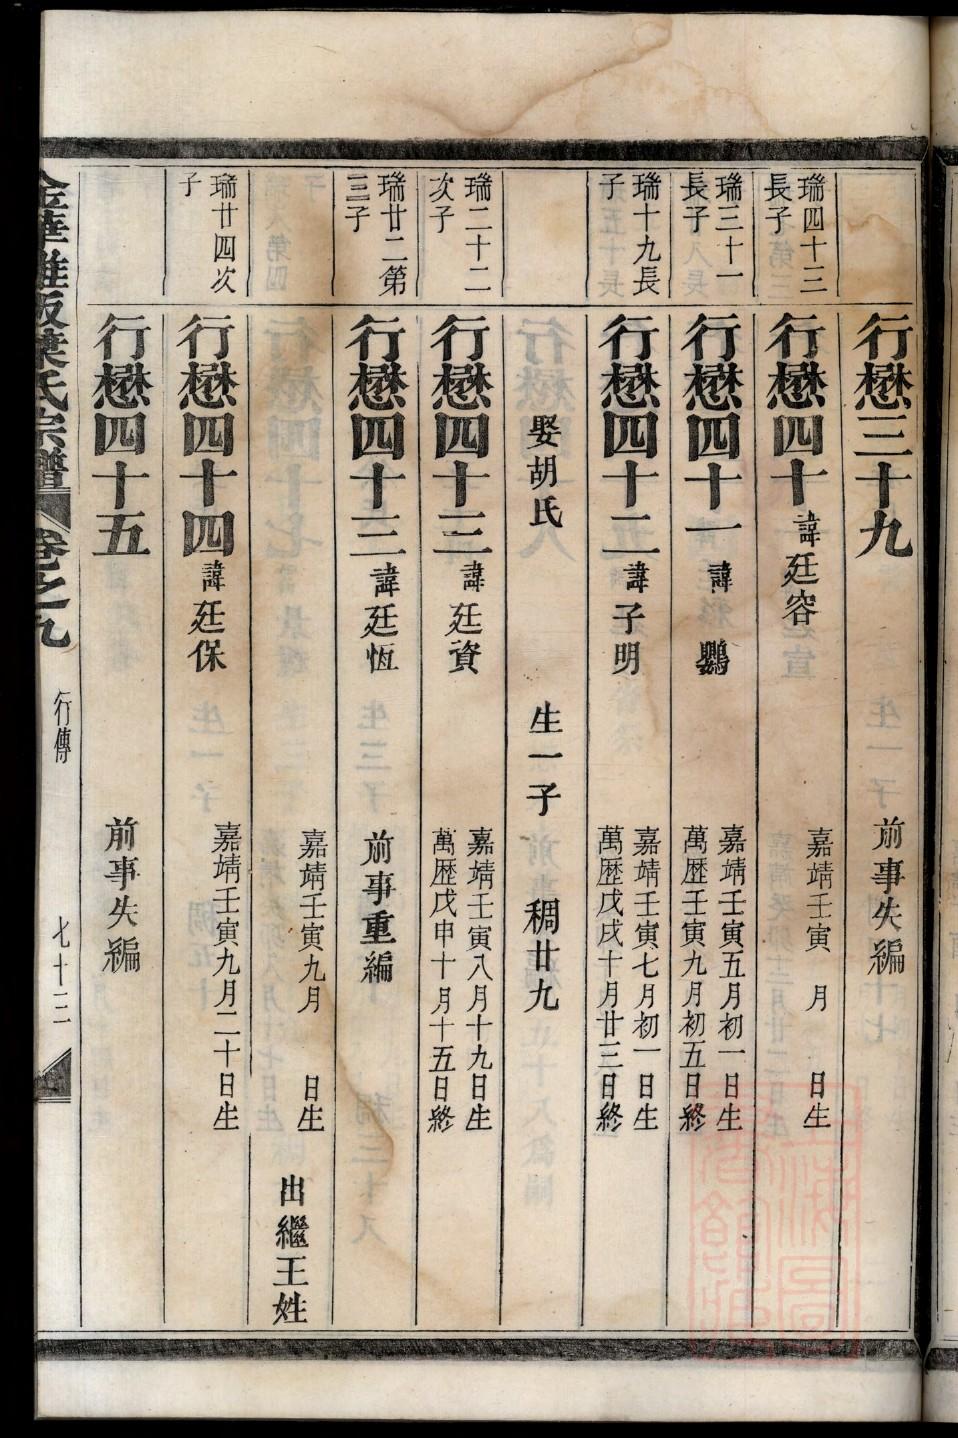 行懋三十九　前事失編
瑞四十三長子
行懋四十　諱廷容　嘉靖壬寅　月　日生
瑞三十一長子
行懋四十一　諱鸚　嘉靖壬寅五月初一日生
萬歷壬寅九月初五日終
瑞十九長子
行懋四十二　諱子明　嘉靖壬寅七月初一日生
萬歷戊戌十月廿三日終
娶胡氏　生一子　稠廿九
瑞二十二次子
行懋四十三　諱廷資　嘉靖壬寅八月十九日生
萬歷戊申十月十五日終
瑞廿二第三子
行懋四十三　諱廷恆　前事重編
嘉靖壬寅九月　日生　出繼王姓
瑞廿四次子
行懋四十四　諱廷保　嘉靖壬寅九月二十日生
行懋四十五　前事失編
葉氏宗譜　卷之九　行傳　七十三